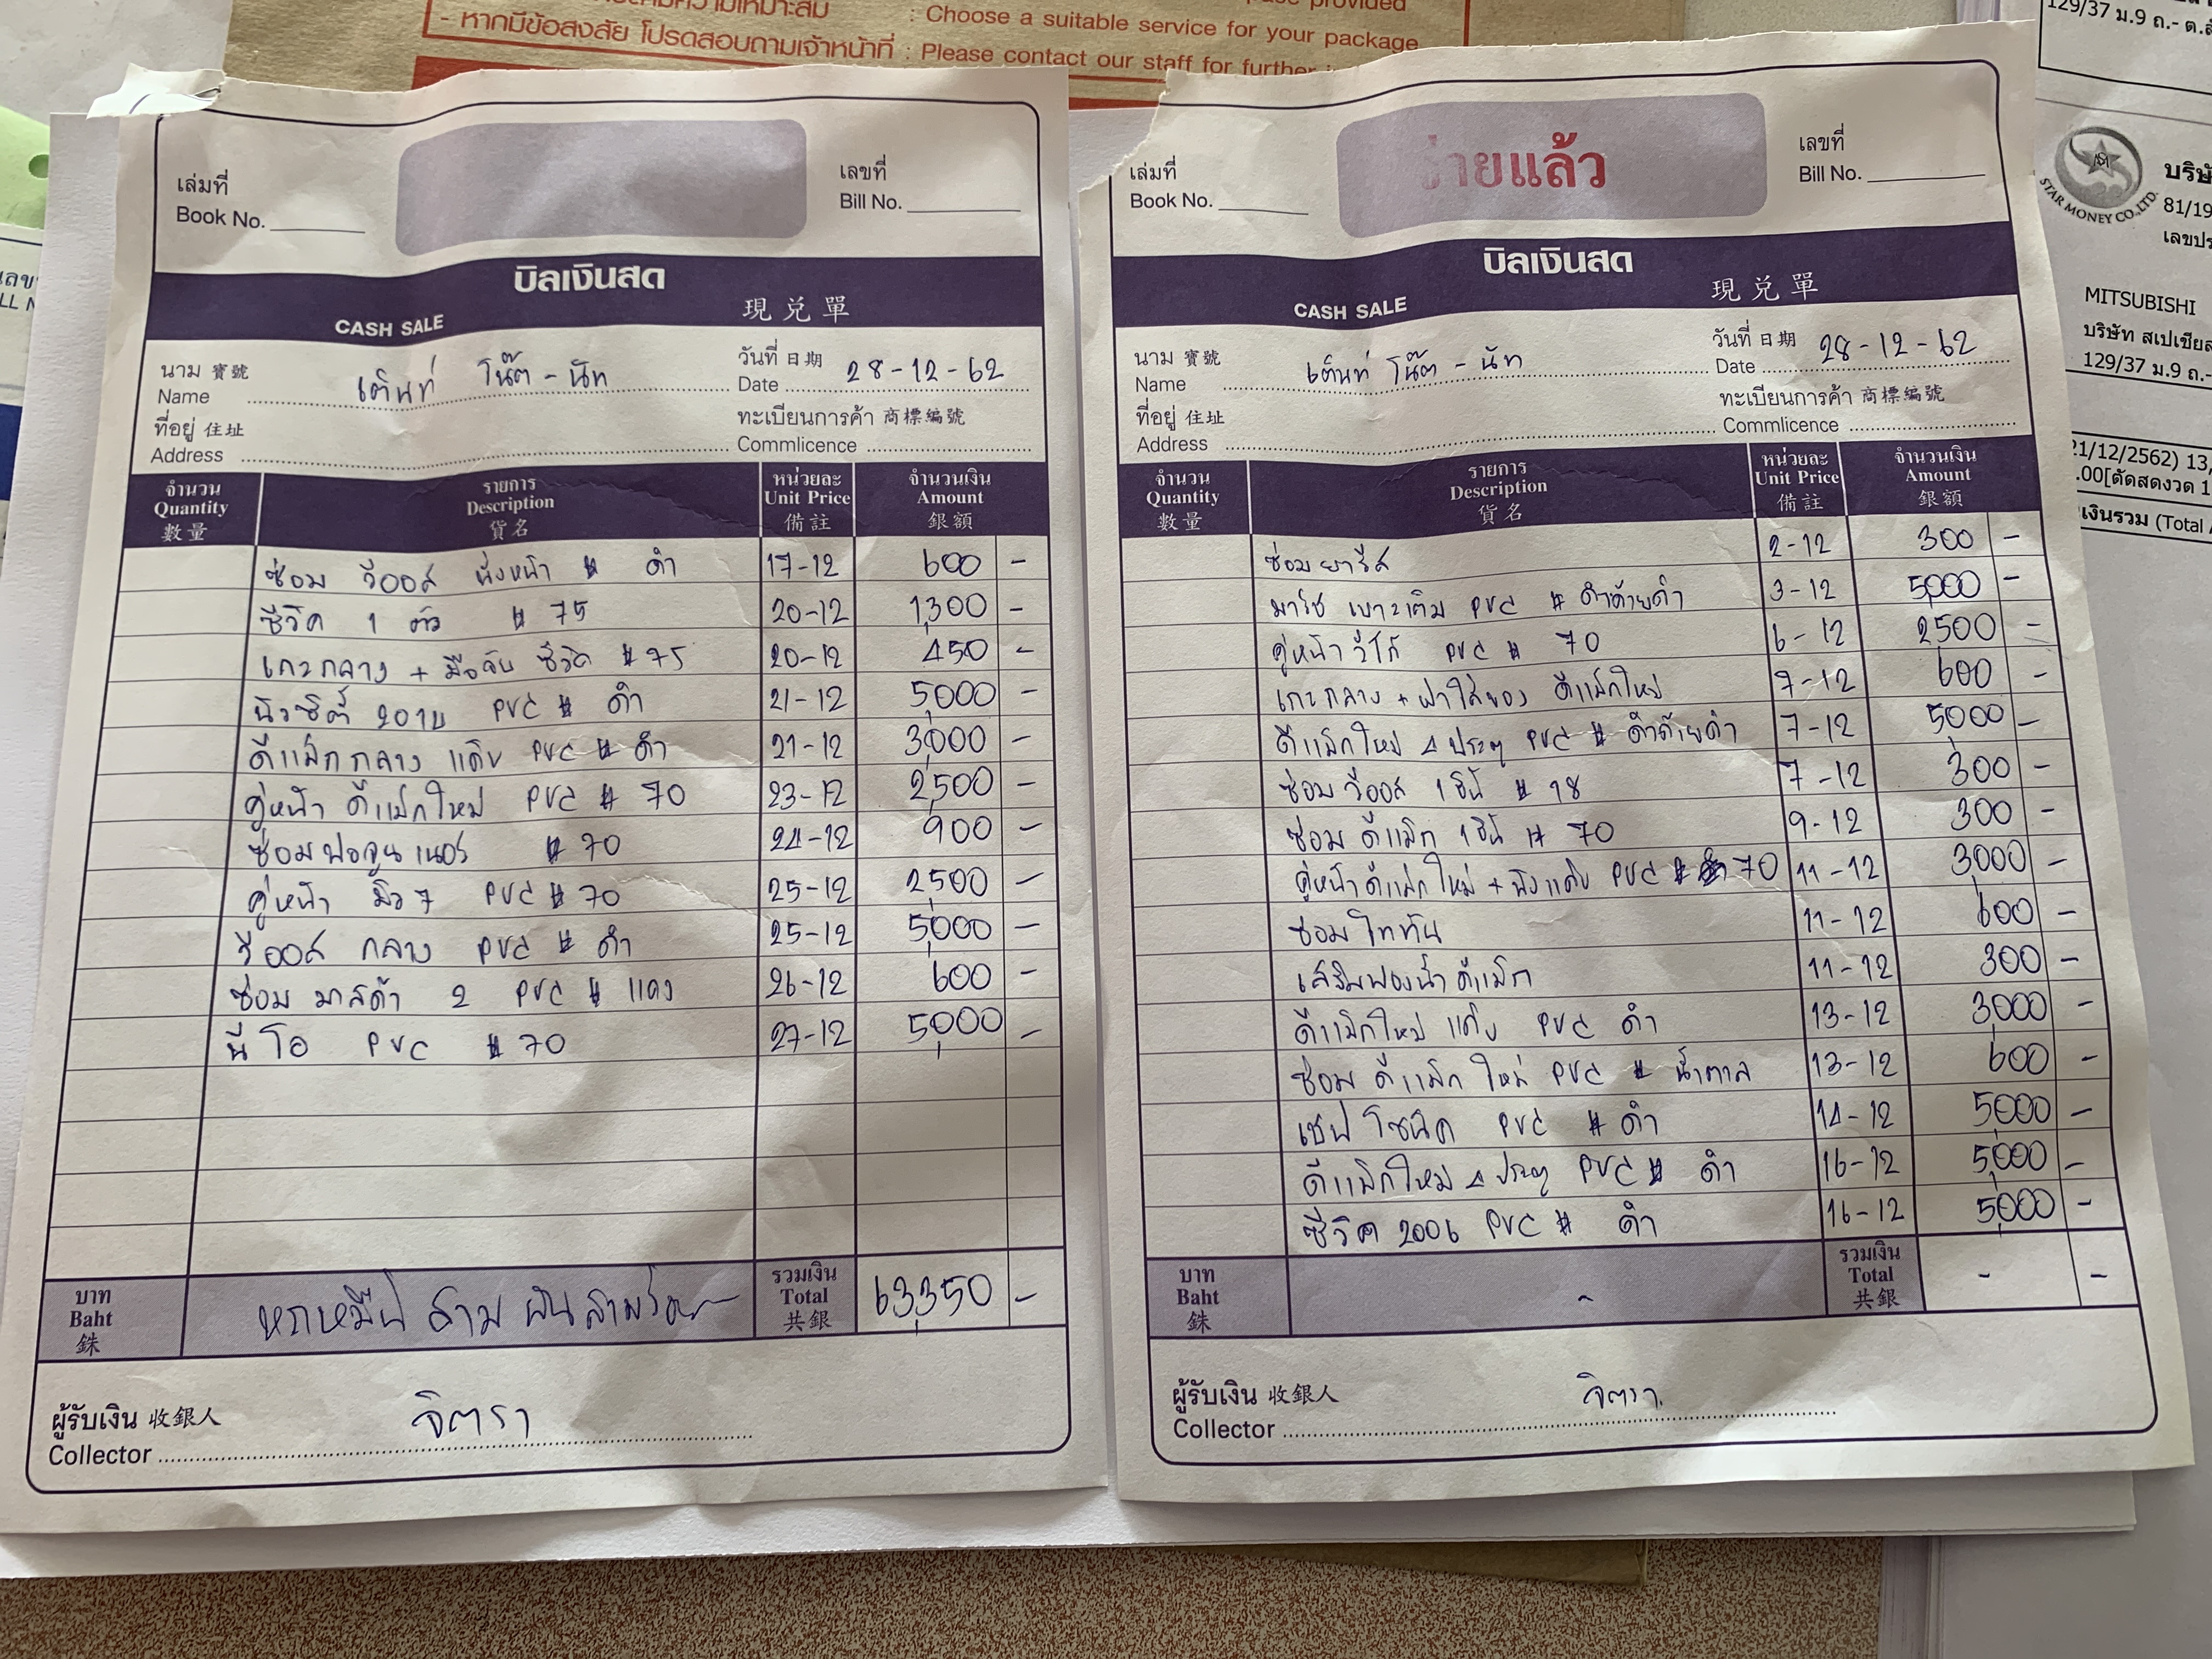 : Choose a suitable service for your package
- หากมีข้อสงสัย โปรดสอบถามเจ้าหน้าที่ : Please contact our staff for further
เล่มที่
Book No.
เลขที่
Bill No.
บิลเงินสด
CASH SALE 現兌單
นาม 寶號
Name เต็นท์ โน๊ต - นัท
วันที่ 日期
Date 28-12-62
ที่อยู่ 住址
Address
ทะเบียนการค้า 商標編號
Commlicence
จำนวน รายการ หน่วยละ จำนวนเงิน
Quantity Description Unit Price Amount
數量 貨名 備註 銀額
ซ่อม วีออส พิงหน้า # ดำ 17-12 600 -
ซีวิค 1 ตัว # 75 20-12 1,300 -
เกะกลาง + มือจับ ซีวิค # 75 20-12 450 -
นิวซิตี้ 2014 PVC # ดำ 21-12 5,000 -
ดีแม็กกลาง แค๊บ PVC # ดำ 21-12 3,000 -
คู่หน้า ดีแม็กใหม่ PVC # 70 23-12 2,500 -
ซ่อมฟอจูนเนอร์ # 70 24-12 900 -
คู่หน้า มิว 7 PVC # 70 25-12 2,500 -
วีออส กลาง PVC # ดำ 25-12 5,000 -
ซ่อม มาสด้า 2 PVC # แดง 26-12 600 -
นีโอ PVC # 70 27-12 5,000 -
บาท
Baht
銖
หกหมื่นสามพันสามร้อย
รวมเงิน
Total
共銀
63,350 -
ผู้รับเงิน 收銀人
Collector จิตรา
เล่มที่
Book No.
จ่ายแล้ว
เลขที่
Bill No.
บิลเงินสด
CASH SALE 現兌單
นาม 寶號
Name เต็นท์ โน๊ต - นัท
วันที่ 日期
Date 28-12-62
ที่อยู่ 住址
Address
ทะเบียนการค้า 商標編號
Commlicence
จำนวน รายการ หน่วยละ จำนวนเงิน
Quantity Description Unit Price Amount
數量 貨名 備註 銀額
ซ่อมยารีส 2-12 300 -
มาร์ช เบาะเดิม PVC # ดำด้ายดำ 3-12 5,000 -
คู่หน้า วีโก้ PVC # 70 6-12 2500 -
เกะกลาง + ฝาใส่ของ ดีแม็กใหม่ 7-12 600 -
ดีแม็กใหม่ 4 ประตู PVC # ดำด้ายดำ 7-12 5,000 -
ซ่อม วีออส 1 ชิ้น # 18 7-12 300 -
ซ่อม ดีแม็ก 1 ชิ้น # 70 9-12 300 -
คู่หน้าดีแม็กใหม่ + พิงแค๊บ PVC # 70 11-12 3,000 -
ซ่อม ไททัน 11-12 600 -
เสริมฟองน้ำ ดีแม็ก 11-12 300 -
ดีแม็กใหม่ แค๊บ PVC ดำ 13-12 3,000 -
ซ่อม ดีแม็ก ใหม่ PVC # น้ำตาล 13-12 600 -
เชฟ โซนิค PVC # ดำ 14-12 5,000 -
ดีแม็กใหม่ 4 ประตู PVC # ดำ 16-12 5,000 -
ซีวิค 2006 PVC # ดำ 16-12 5,000 -
บาท
Baht
銖
-
รวมเงิน
Total
共銀
- -
ผู้รับเงิน 收銀人
Collector จิตรา
STAR MONEY CO.,LTD.
MITSUBISHI
129/37 ม.9 ถ.-
(Total